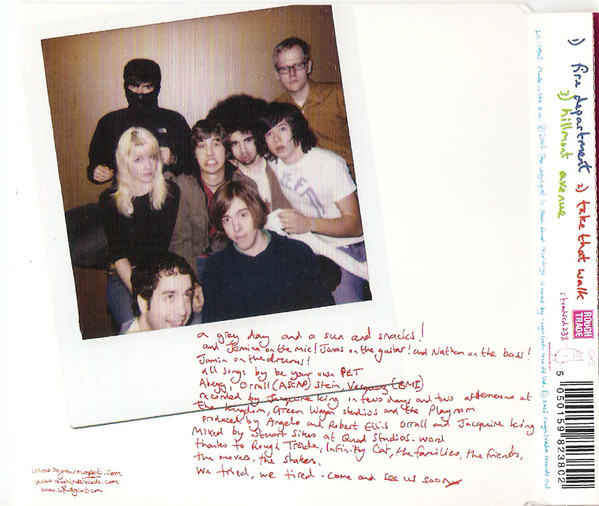 a grey day and a sun and snacks!
and Jemina on the mic! Jonas on the guitar! and Nathan on the bass!
Jamin on the drums!
all songs by be your own PET
Abegg, Orrall (ASCAP) Stein Vasquez (BMI)
recorded by Jacquire King in two days and two afternoons at
The Kingdom, Green Wagon studios and the Playroom
produced by Angelo and Robert Ellis Orrall and Jacquire King
Mixed by Stuart Sikes at Quad Studios. word
thanks to Rough Trade, Infinity Cat, the families, the friends,
the moves, the shakes.
We tried, we tired. Come and see us soon
www.beyourownpet.com
www.roughtraderecords.com
www.infinitycat.com
1) fire department 2) take that walk
3) hillmont avenue
ROUGH TRADE
rtradscd238
5 050159 823802